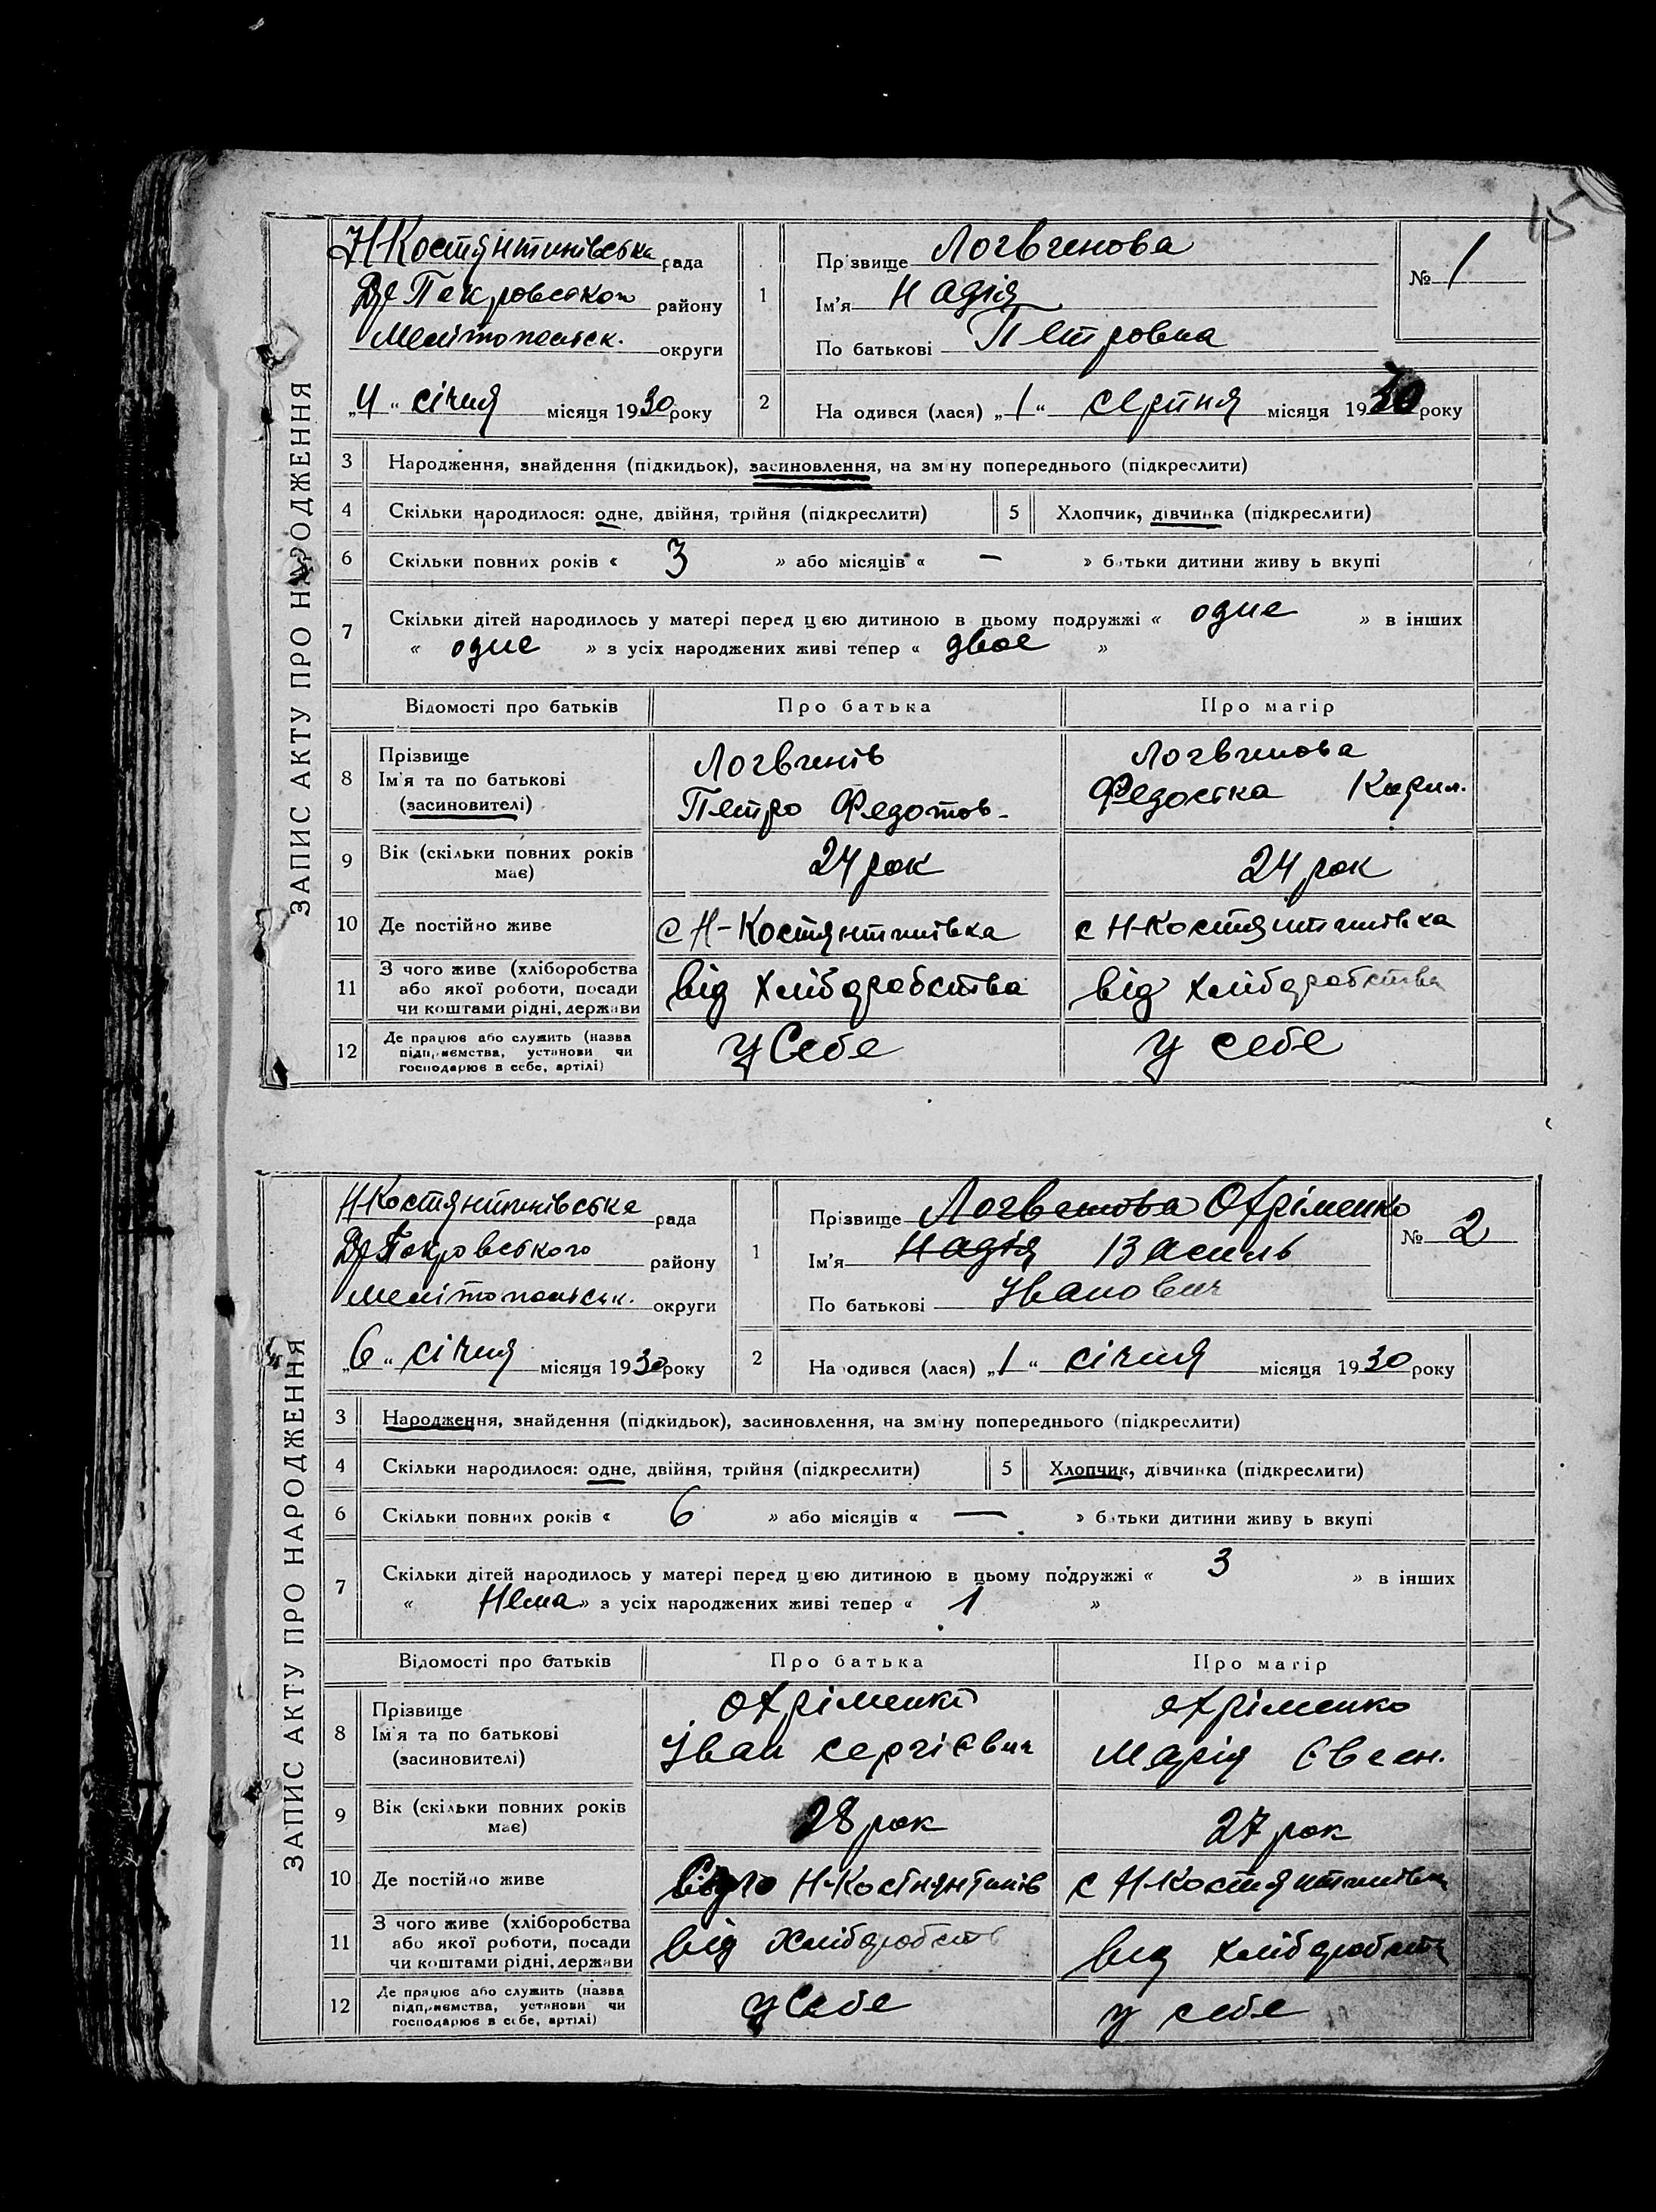 15
ЗАПИС АКТУ ПРО НАРОДЖЕННЯ
Н-Костянтинівська рада
Покровськог району
Мелітопольськ. округи
„4“ січня місяця 1930 року
1
Прізвище Логвченова
Ім'я Надія
По батькові Петровна
№ 1
2 Народився (лася) „1“ серпня місяця 1930 року
3 Народження, знайдення (підкидьок), засиновлення, на зміну попереднього (підкреслити)
4 Скільки народилося: одне, двійня, трійня (підкреслити) 5 Хлопчик, дівчинка (підкреслити)
6 Скільки повних років « 3 » або місяців « — » батьки дитини живуть вкупі
7 Скільки дітей народилось у матері перед цією дитиною в цьому подружжі « одне » в інших
« одне » з усіх народжених живі тепер « двоє »
Відомості про батьків Про батька Про матір
8 Прізвище
Ім'я та по батькові
(засиновителі)
Логвченів
Петро Федотов-
Логвченова
Федоска Кирил.
9 Вік (скільки повних років
має)
24 рок
24 рок
10 Де постійно живе
с Н-Костянтинівка
с Н-Костянтинівка
11 З чого живе (хліборобства
або якої роботи, посади
чи коштами рідні, держави
від хліборобства
від хліборобства
12 Де працює або служить (назва
підприємства, установи чи
господарює в себе, артілі)
у себе
у себе
ЗАПИС АКТУ ПРО НАРОДЖЕННЯ
Н-Костянтинівська рада
Покровського району
Мелітопольськ. округи
„6“ січня місяця 1930 року
1
Прізвище Охріменко
Ім'я Надія Василь
По батькові Іванович
№ 2
2 Народився (лася) „1“ січня місяця 1930 року
3 Народження, знайдення (підкидьок), засиновлення, на зміну попереднього (підкреслити)
4 Скільки народилося: одне, двійня, трійня (підкреслити) 5 Хлопчик, дівчинка (підкреслити)
6 Скільки повних років « 6 » або місяців « — » батьки дитини живуть вкупі
7 Скільки дітей народилось у матері перед цією дитиною в цьому подружжі « 3 » в інших
« Нема » з усіх народжених живі тепер « 1 »
Відомості про батьків Про батька Про матір
8 Прізвище
Ім'я та по батькові
(засиновителі)
Охріменко
Іван Сергієвич
Охріменко
Марія Євген.
9 Вік (скільки повних років
має)
28 рок
27 рок
10 Де постійно живе
Н-Костянтинів
с Н-Костянтинівка
11 З чого живе (хліборобства
або якої роботи, посади
чи коштами рідні, держави
від хліборобств
від хліборобств
12 Де працює або служить (назва
підприємства, установи чи
господарює в себе, артілі)
у себе
у себе